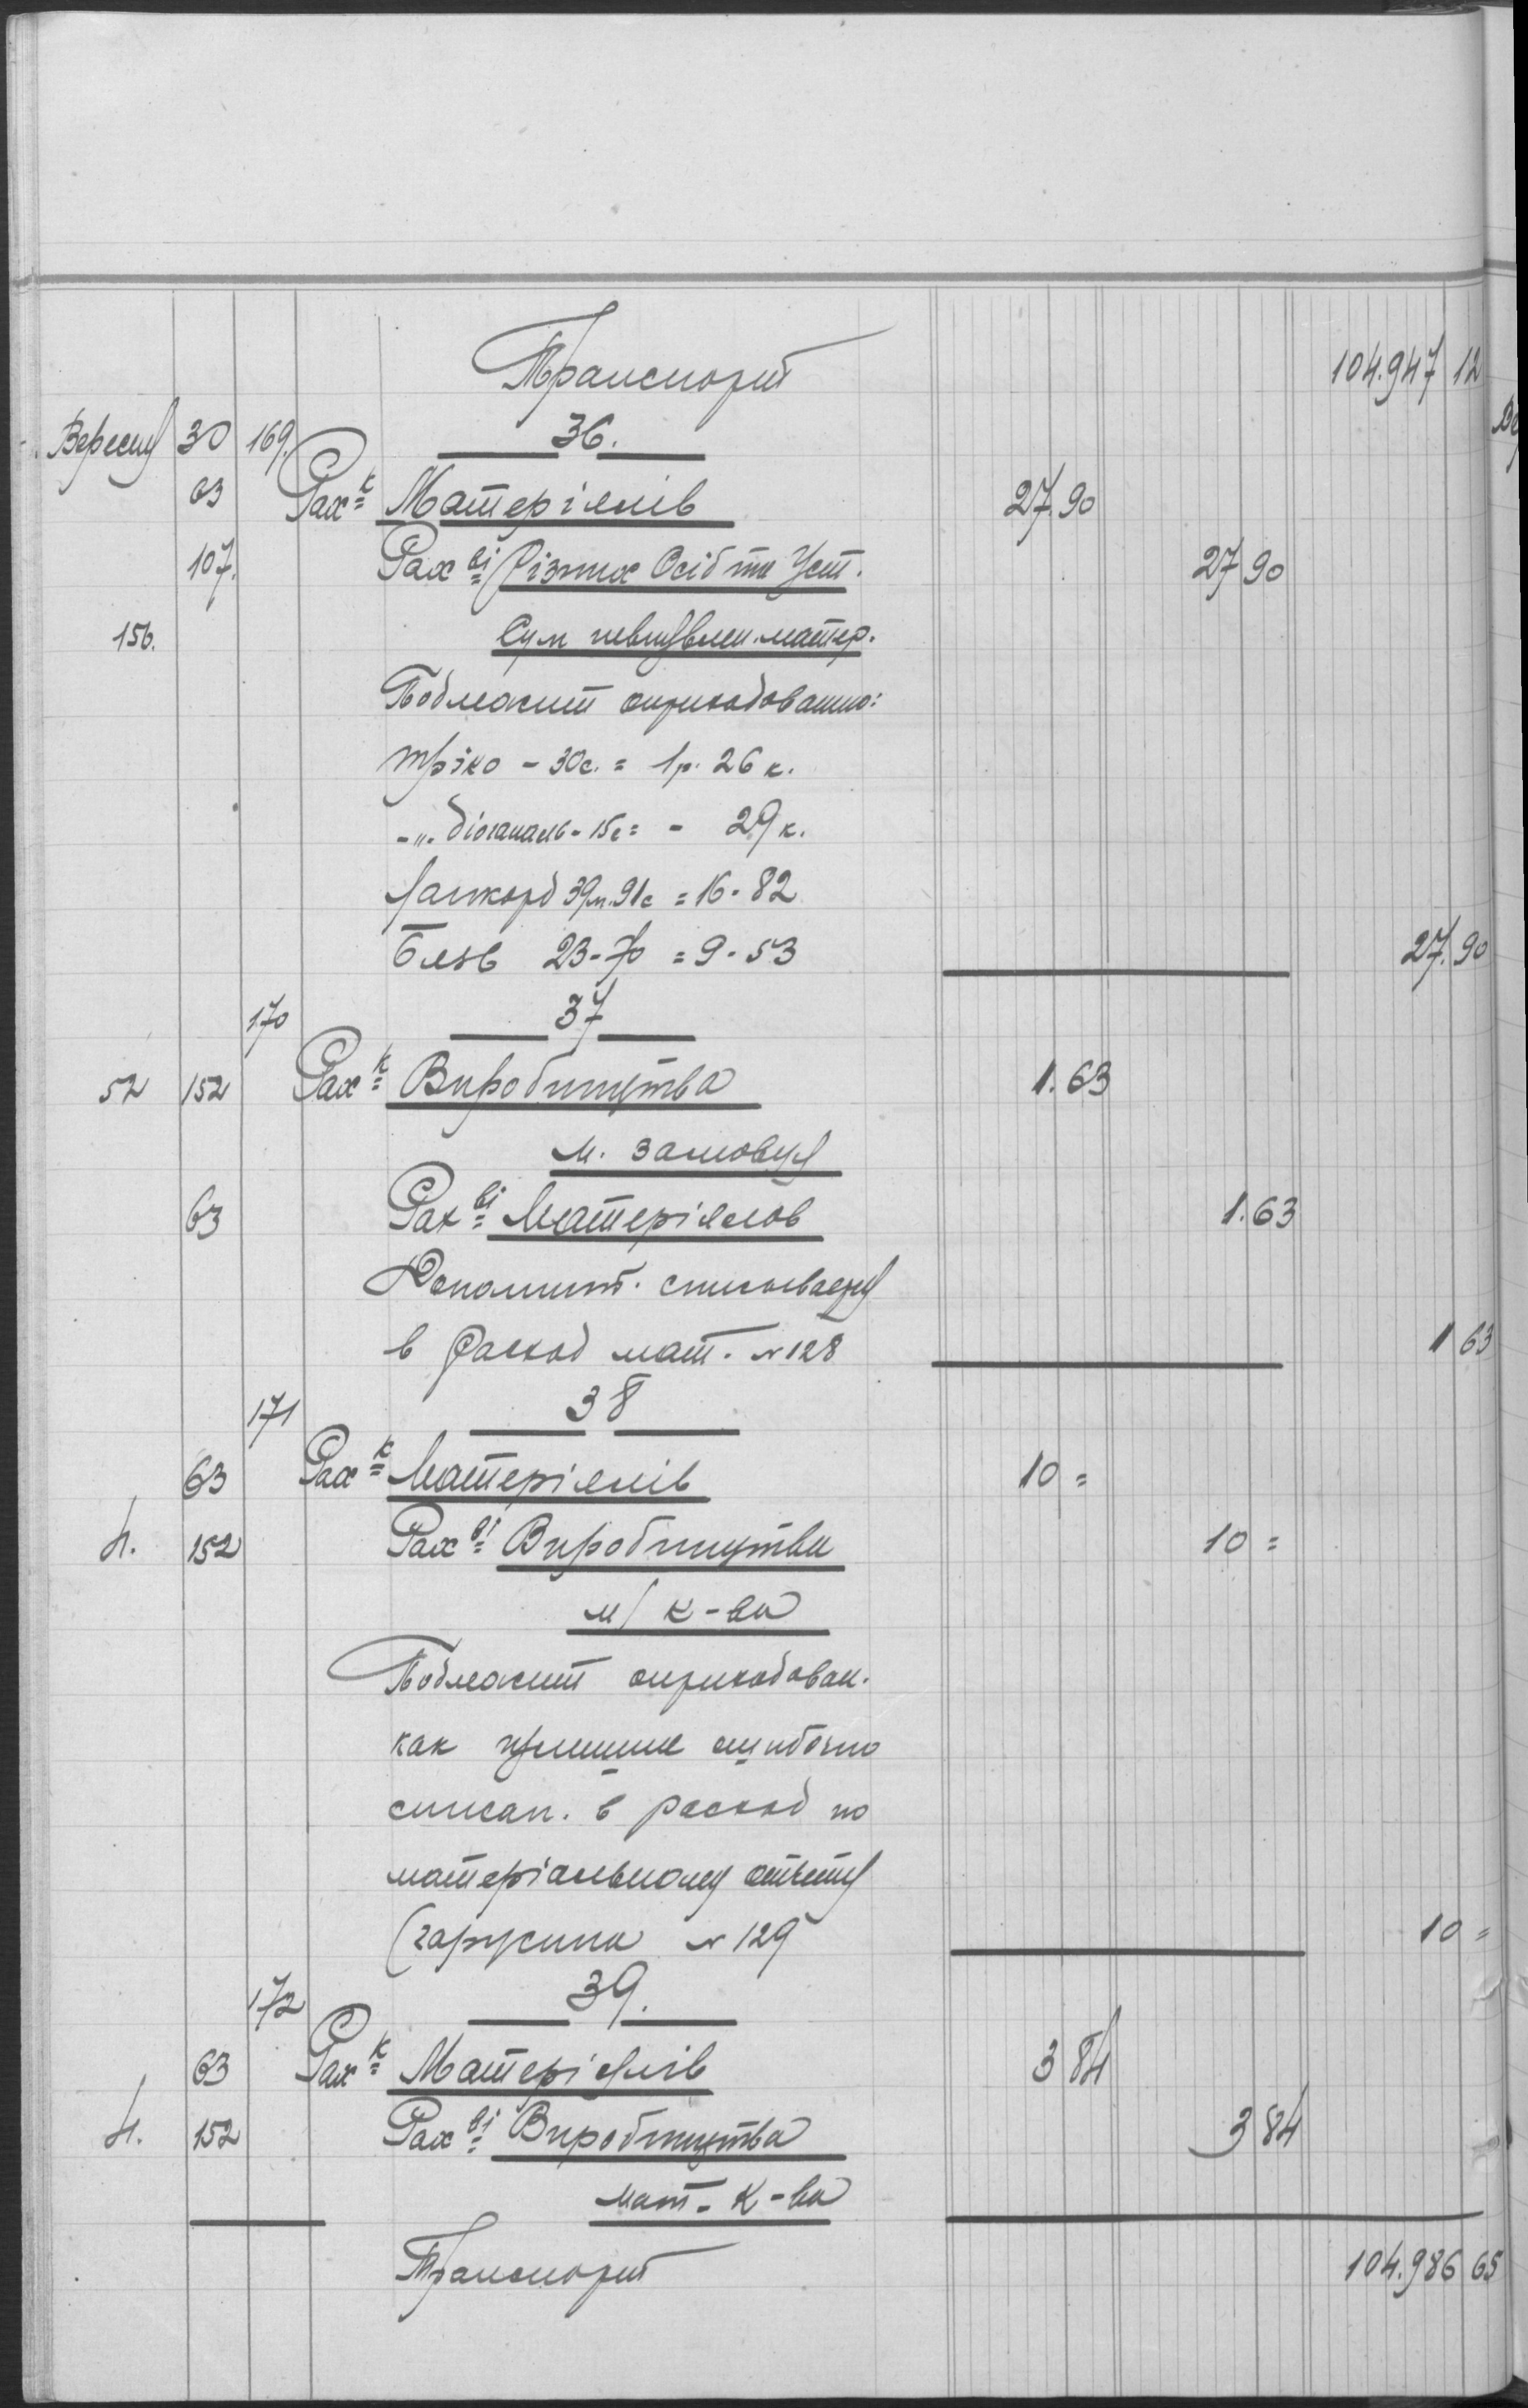 Транспорт 104.947 12
Вересня 30 169. 36.
63 Рах-к Матеріялів 27.90
107. Рах-ві Різних Осіб та Уст. 27 90
156. Сум матер.
Подлежит оприходованию:
тріко - 30с. = 1р. 26 к.
-"- діогональ - 15с = - 29 к.
39м.91с = 16-82
Бязь 23-70 = 9-53 27.90
170 37
52 152 Рах-к Виробництва 1.63
м. замовця
63 Рах-ві Матеріялов 1.63
Дополнит. списывается
в расход мат. № 128 1 63
171 38
63 Рах-к Матеріялів 10 =
4. 152 Рах-ві Виробництва 10 =
м/ к-ва
Подлежит оприходован.
как излишне ошибочно
списан. в расход по
матеріальному отчету
(гарусина № 129 10 =
172 39.
63 Рах-к Матеріялів 3 84
4. 152 Рах-ві Виробництва 3 84
мат. к-ва
Транспорт 104.986 65